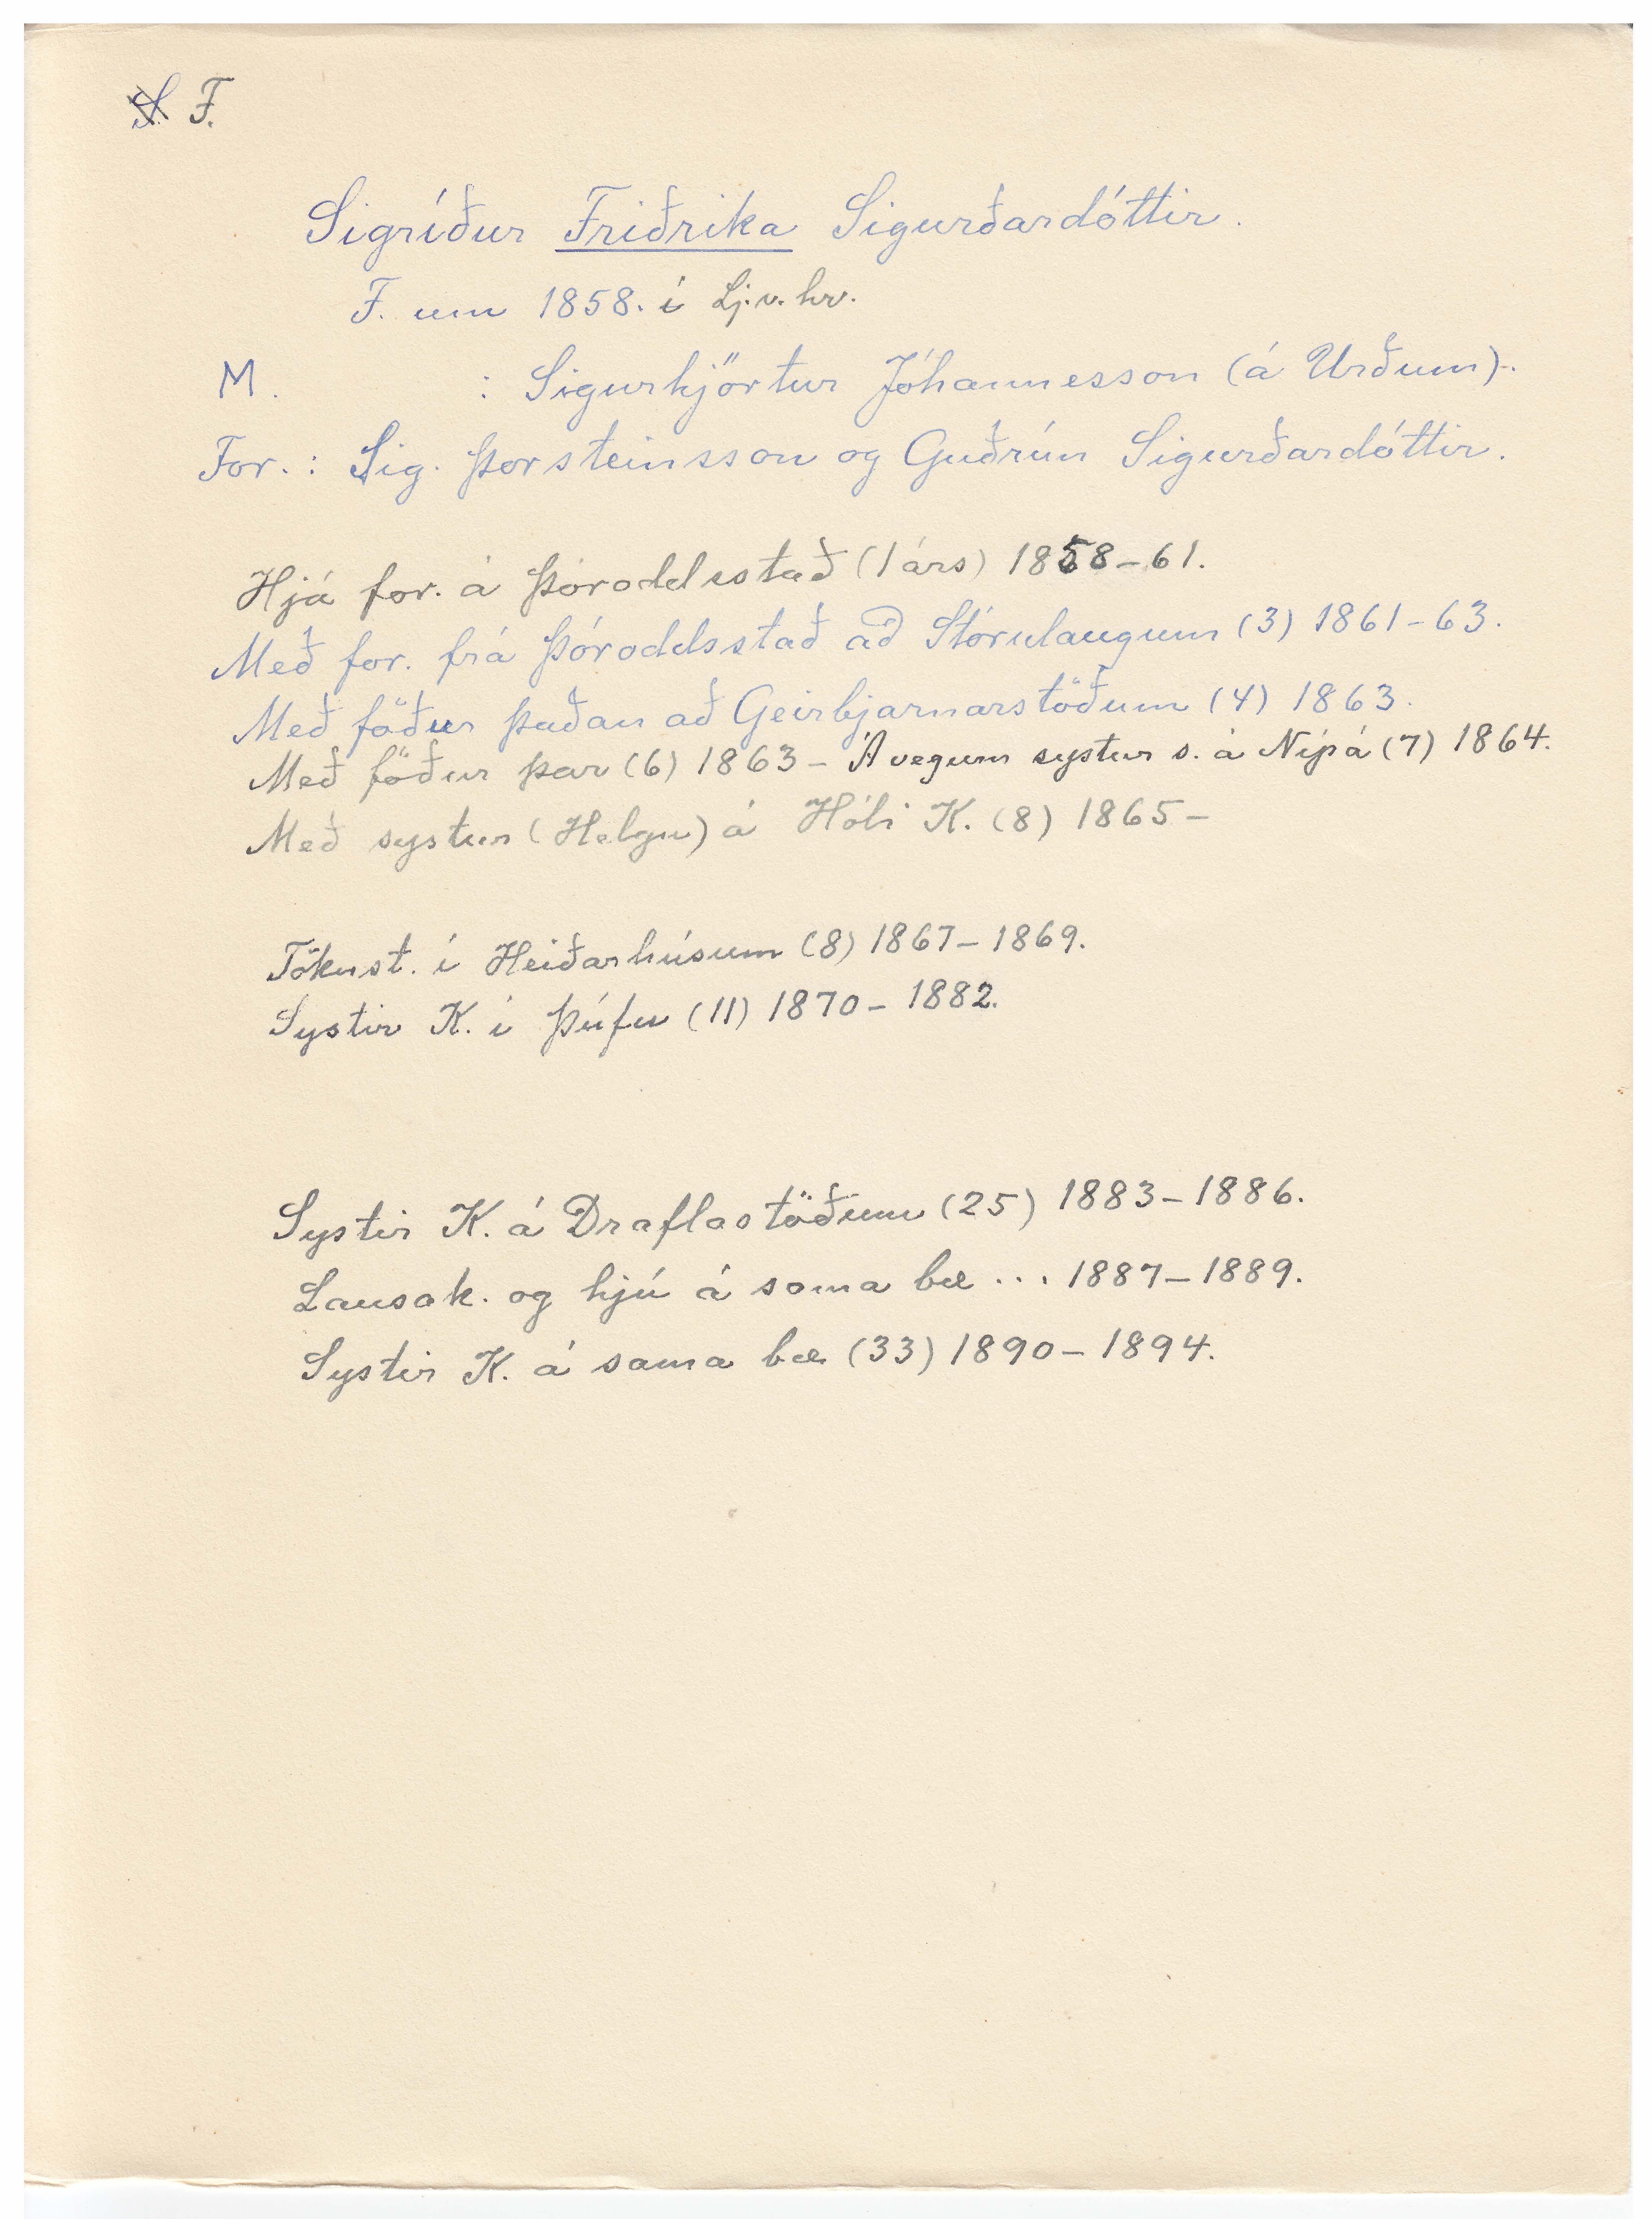 F.
Sigríður Friðrika Sigurðardóttir.
F. um 1858. í Lj.v.hr.
M. : Sigurhjörtur Jóhannesson (á Urðum).
For.: Sig. Þorsteinsson og Guðrún Sigurðardóttir.
Hjá for. á Þóroddsstað (1 árs) 1858-61.
Með for. frá Þóroddsstað að Stórulaugum (3) 1861-63.
Með föður þaðan að Geirbjarnarstöðum (4) 1863.
Með föður þar (6) 1863 - Á vegum systur s. á Nípá (7) 1864.
Með systur (Helgu) á Hóli K. (8) 1865-
Tökust. í Heiðarhúsum (8) 1867-1869.
Systir K. í Þúfu (11) 1870-1882.
Systir K. á Draflastöðum (25) 1883-1886.
Lausak. og hjú á sama bæ ... 1887-1889.
Systir K. á sama bæ (33) 1890-1894.